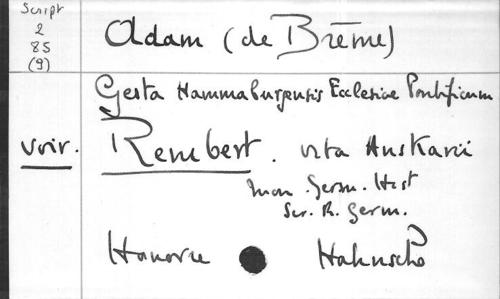 Script
2
85
(9)
Adam (de Brême)
Gesta Hammaburgensis Ecclesiae Pontificum
Voir. Rembert. vita Anskarii
Mon. Germ. Hist
Scr. R. Germ.
Hanovre Hahnsche